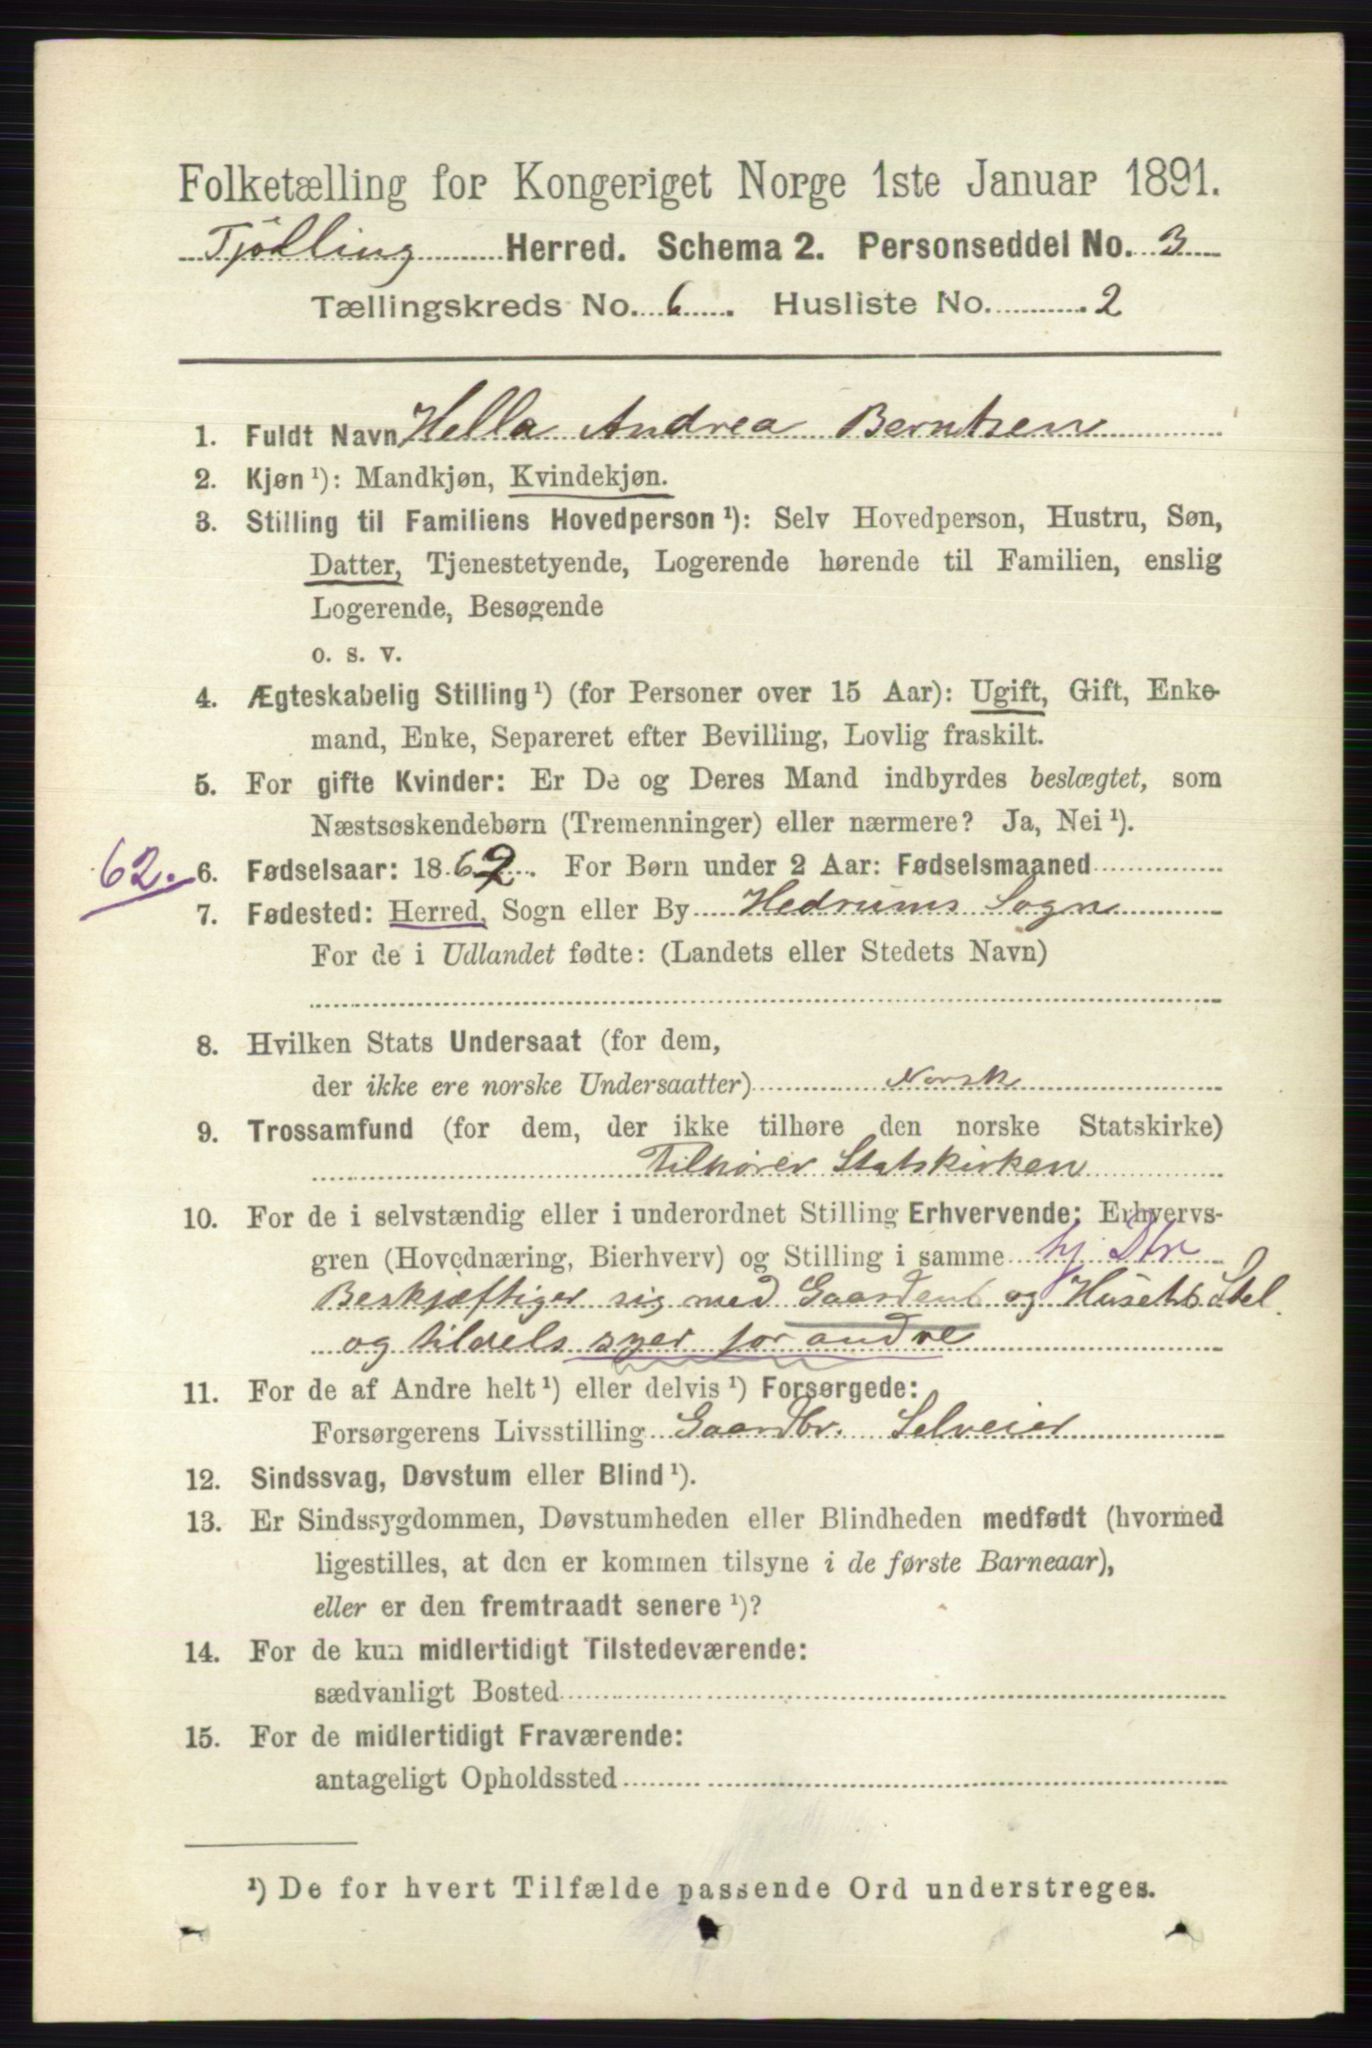 Folketælling for Kongeriget Norge 1ste Januar 1891.
Tjölling Herred. Schema 2. Personseddel No. 3
Tællingskreds No. 6. Husliste No. 2
1. Fuldt Navn Hella Andrea Berntsen
2. Kjøn ¹): Mandkjøn, Kvindekjøn.
3. Stilling til Familiens Hovedperson ¹): Selv Hovedperson, Hustru, Søn,
Datter, Tjenestetyende, Logerende hørende til Familien, enslig
Logerende, Besøgende
o. s. v.
4. Ægteskabelig Stilling ¹) (for Personer over 15 Aar): Ugift, Gift, Enke-
mand, Enke, Separeret efter Bevilling, Lovlig fraskilt.
5. For gifte Kvinder: Er De og Deres Mand indbyrdes beslægtet, som
Næstsøskendebørn (Tremenninger) eller nærmere? Ja, Nei ¹).
62. 6. Fødselsaar: 1862. For Børn under 2 Aar: Fødselsmaaned
7. Fødested: Herred, Sogn eller By Hedrums Sogn
For de i Udlandet fødte: (Landets eller Stedets Navn)
8. Hvilken Stats Undersaat (for dem,
der ikke ere norske Undersaatter) Norsk
9. Trossamfund (for dem, der ikke tilhøre den norske Statskirke)
Tilhører Statskirken
10. For de i selvstændig eller i underordnet Stilling Erhvervende: Erhvervs-
gren (Hovednæring, Bierhverv) og Stilling i samme hj. Dtr
Beskjæftiger sig med Gaardens og Husets Stel
og tildels syer for andre
11. For de af Andre helt ¹) eller delvis ¹) Forsørgede:
Forsørgerens Livsstilling Gaardbr. Selveier
12. Sindssvag, Døvstum eller Blind ¹).
13. Er Sindssygdommen, Døvstumheden eller Blindheden medfødt (hvormed
ligestilles, at den er kommen tilsyne i de første Barneaar),
eller er den fremtraadt senere ¹)?
14. For de kun midlertidigt Tilstedeværende:
sædvanligt Bosted
15. For de midlertidigt Fraværende:
antageligt Opholdssted
¹) De for hvert Tilfælde passende Ord understreges.